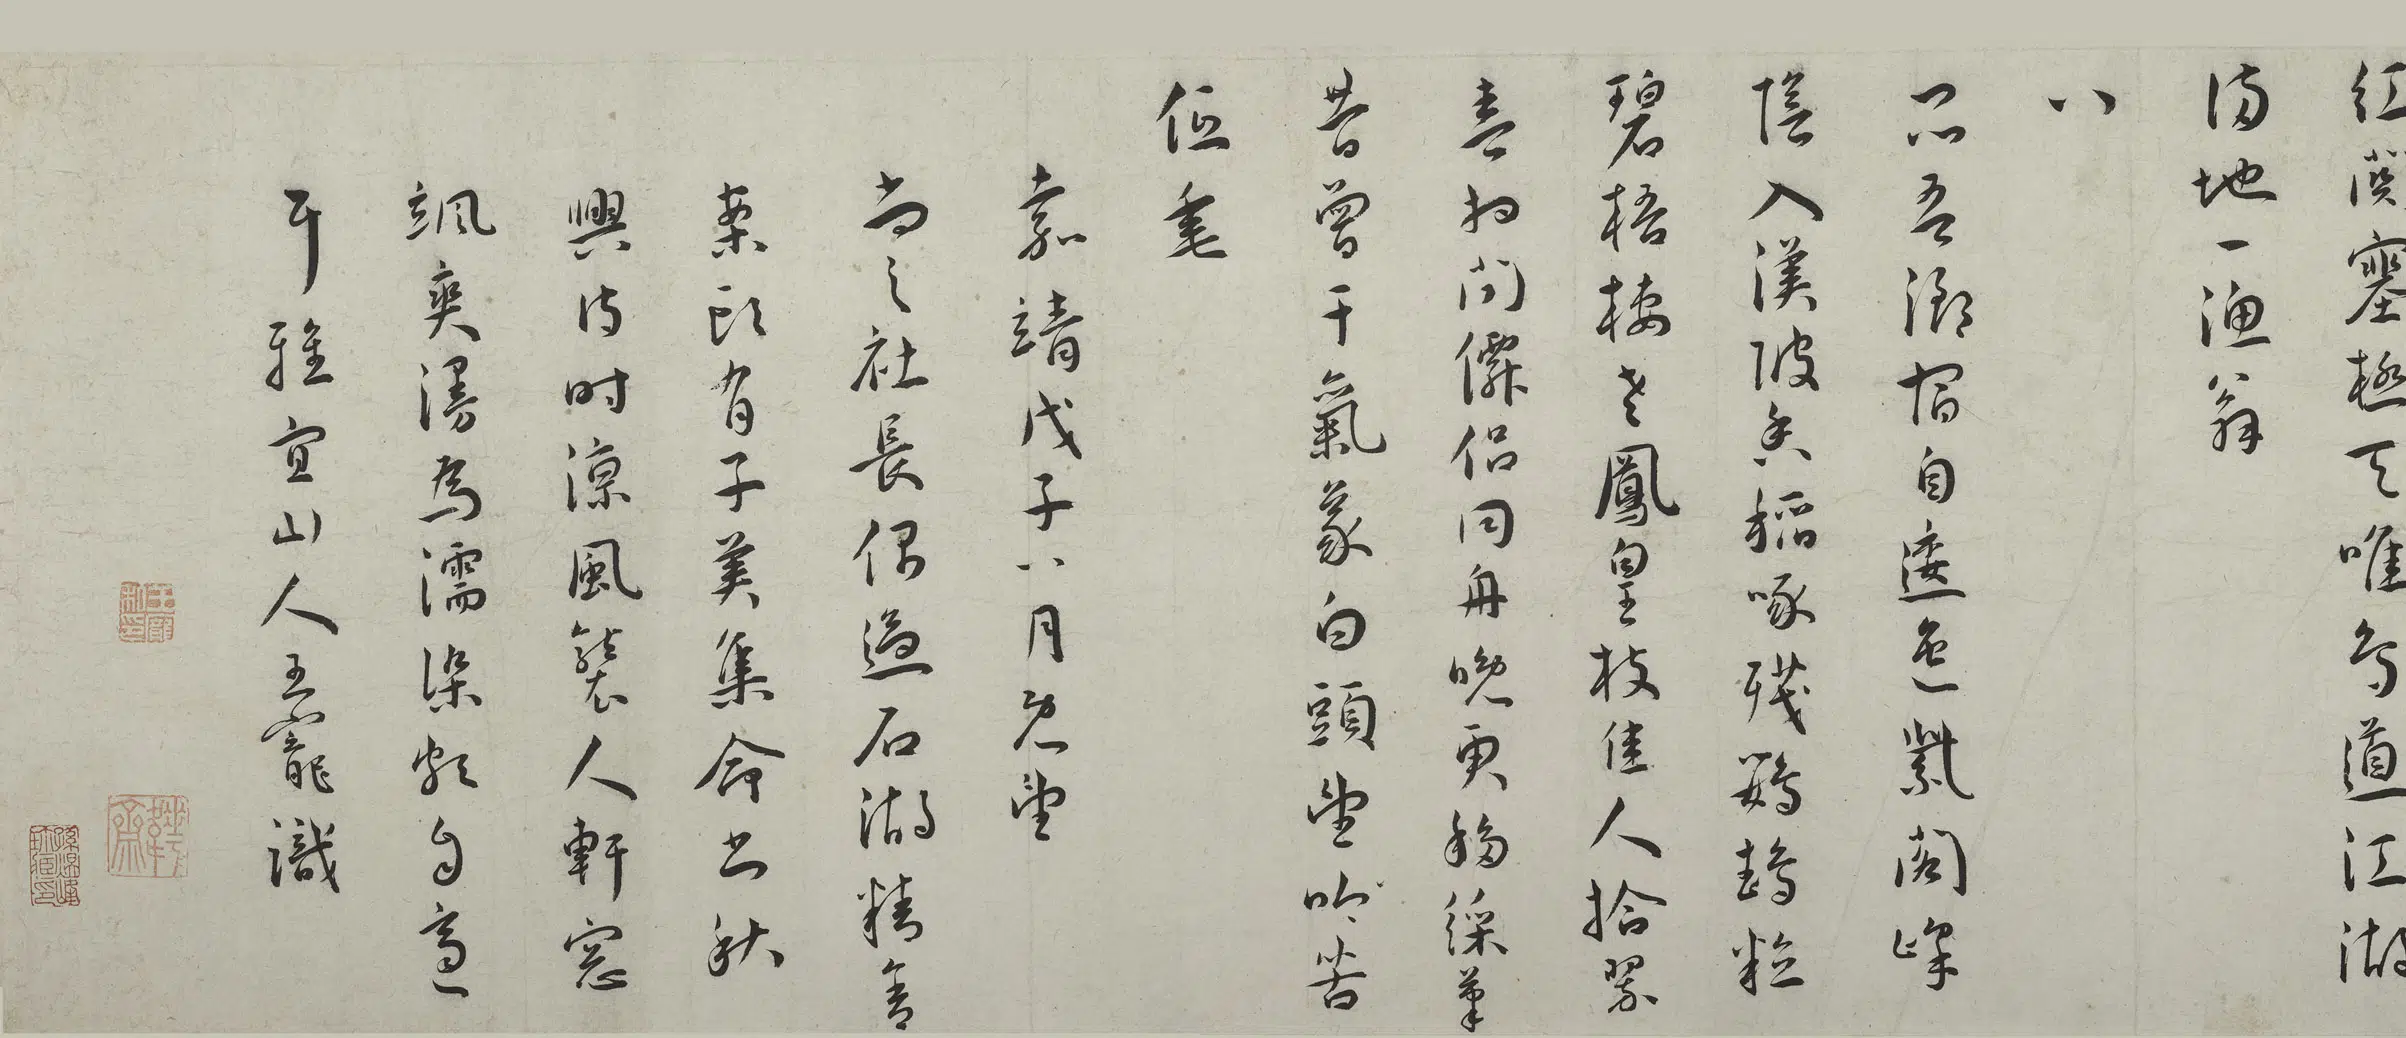 紅關塞極天唯鳥道江湖
滿地一漁翁
八
昆吾御宿自逶迤紫閣峰
陰入渼陂香稻啄殘鸚鵡粒
碧梧棲老鳳皇枝佳人拾翠
春相問僊侶同舟晚更移綵筆
昔曾干氣象白頭望吟苦
低垂
嘉靖戊子八月既望
尚之社長偶過石湖精舍
案頭有子美集命書秋
興詩時涼風襲人軒窓
颯爽漫為濡染頗自適
耳雅宜山人王寵識